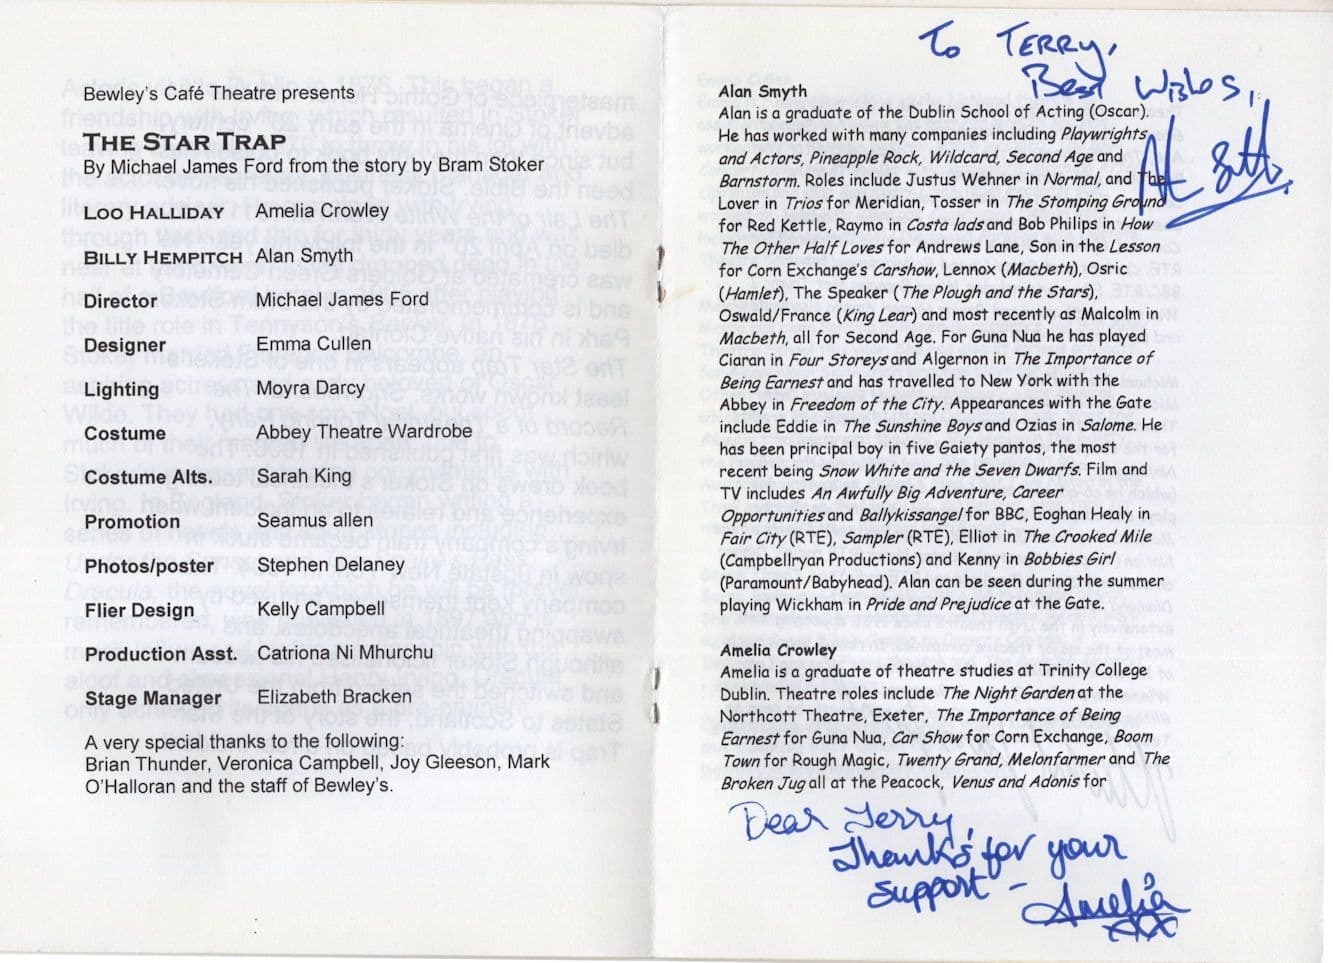 Bewley's Café Theatre presents
THE STAR TRAP
By Michael James Ford from the story by Bram Stoker
LOO HALLIDAY Amelia Crowley
BILLY HEMPITCH Alan Smyth
Director Michael James Ford
Designer Emma Cullen
Lighting Moyra Darcy
Costume Abbey Theatre Wardrobe
Costume Alts. Sarah King
Promotion Seamus allen
Photos/poster Stephen Delaney
Flier Design Kelly Campbell
Production Asst. Catriona Ni Mhurchu
Stage Manager Elizabeth Bracken
A very special thanks to the following:
Brian Thunder, Veronica Campbell, Joy Gleeson, Mark
O'Halloran and the staff of Bewley's.
To TERRY,
Best Wishes,
Alan Smyth
Alan is a graduate of the Dublin School of Acting (Oscar).
He has worked with many companies including Playwrights
and Actors, Pineapple Rock, Wildcard, Second Age and
Barnstorm. Roles include Justus Wehner in Normal, and The
Lover in Trios for Meridian, Tosser in The Stomping Ground
for Red Kettle, Raymo in Costa lads and Bob Philips in How
The Other Half Loves for Andrews Lane, Son in the Lesson
for Corn Exchange's Carshow, Lennox (Macbeth), Osric
(Hamlet), The Speaker (The Plough and the Stars),
Oswald/France (King Lear) and most recently as Malcolm in
Macbeth, all for Second Age. For Guna Nua he has played
Ciaran in Four Storeys and Algernon in The Importance of
Being Earnest and has travelled to New York with the
Abbey in Freedom of the City. Appearances with the Gate
include Eddie in The Sunshine Boys and Ozias in Salome. He
has been principal boy in five Gaiety pantos, the most
recent being Snow White and the Seven Dwarfs. Film and
TV includes An Awfully Big Adventure, Career
Opportunities and Ballykissangel for BBC, Eoghan Healy in
Fair City (RTE), Sampler (RTE), Elliot in The Crooked Mile
(Campbellryan Productions) and Kenny in Bobbies Girl
(Paramount/Babyhead). Alan can be seen during the summer
playing Wickham in Pride and Prejudice at the Gate.
Amelia Crowley
Amelia is a graduate of theatre studies at Trinity College
Dublin. Theatre roles include The Night Garden at the
Northcott Theatre, Exeter, The Importance of Being
Earnest for Guna Nua, Car Show for Corn Exchange, Boom
Town for Rough Magic, Twenty Grand, Melonfarmer and The
Broken Jug all at the Peacock, Venus and Adonis for
Dear Terry,
Thanks for your
support -
Amelia
XX